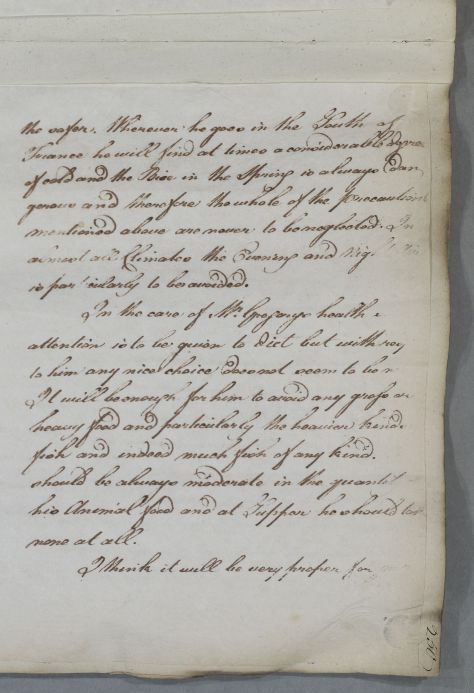 the safer. Wherever he goes in the South of
France he will find at times a considerable degree
of cold and the Rise in the Spring is always Dan
gerous and therefore the whole of the precautions
mentioned above are never to be neglected. In
almost all Climates the Evening and Nig
is par icularly to be avoided.
In the care of Mr. health
attention is to be given to Diet but with re
to him any nice choice does not seem to be n
It will be enough for him to avoid any gross or
heavy food and particularly the heavier kinds
fish and indeed much fish of any kind.
should be always moderate in the quantit
his Animal food and at Supper he should ta
none at all.
I think it will be very proper for